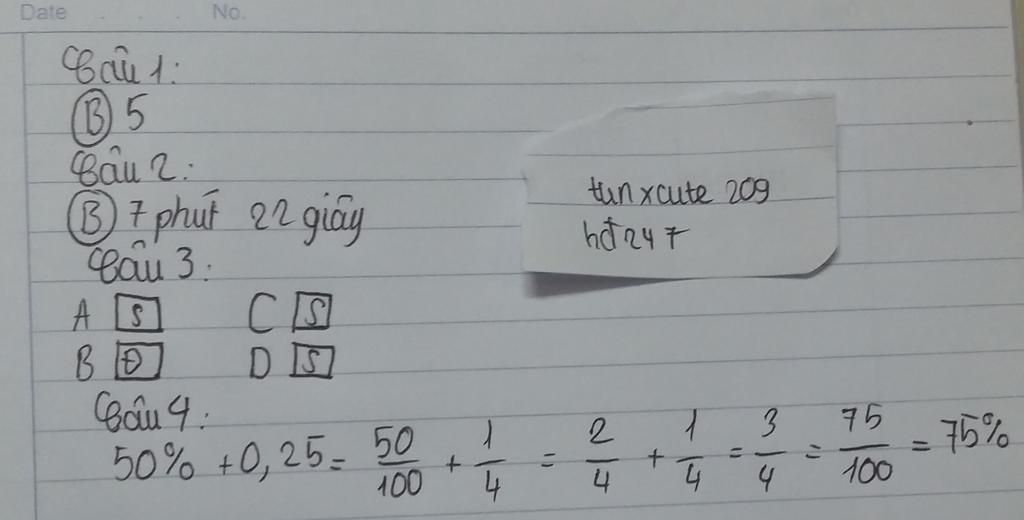 Date . . . No.
Câu 1:
B 5
Câu 2:
B 7 phút 22 giây
Câu 3:
A S C S
B Đ D S
Câu 4:
50% + 0,25 = 50/100 + 1/4 = 2/4 + 1/4 = 3/4 = 75/100 = 75%
tunxcute 209
hđ247